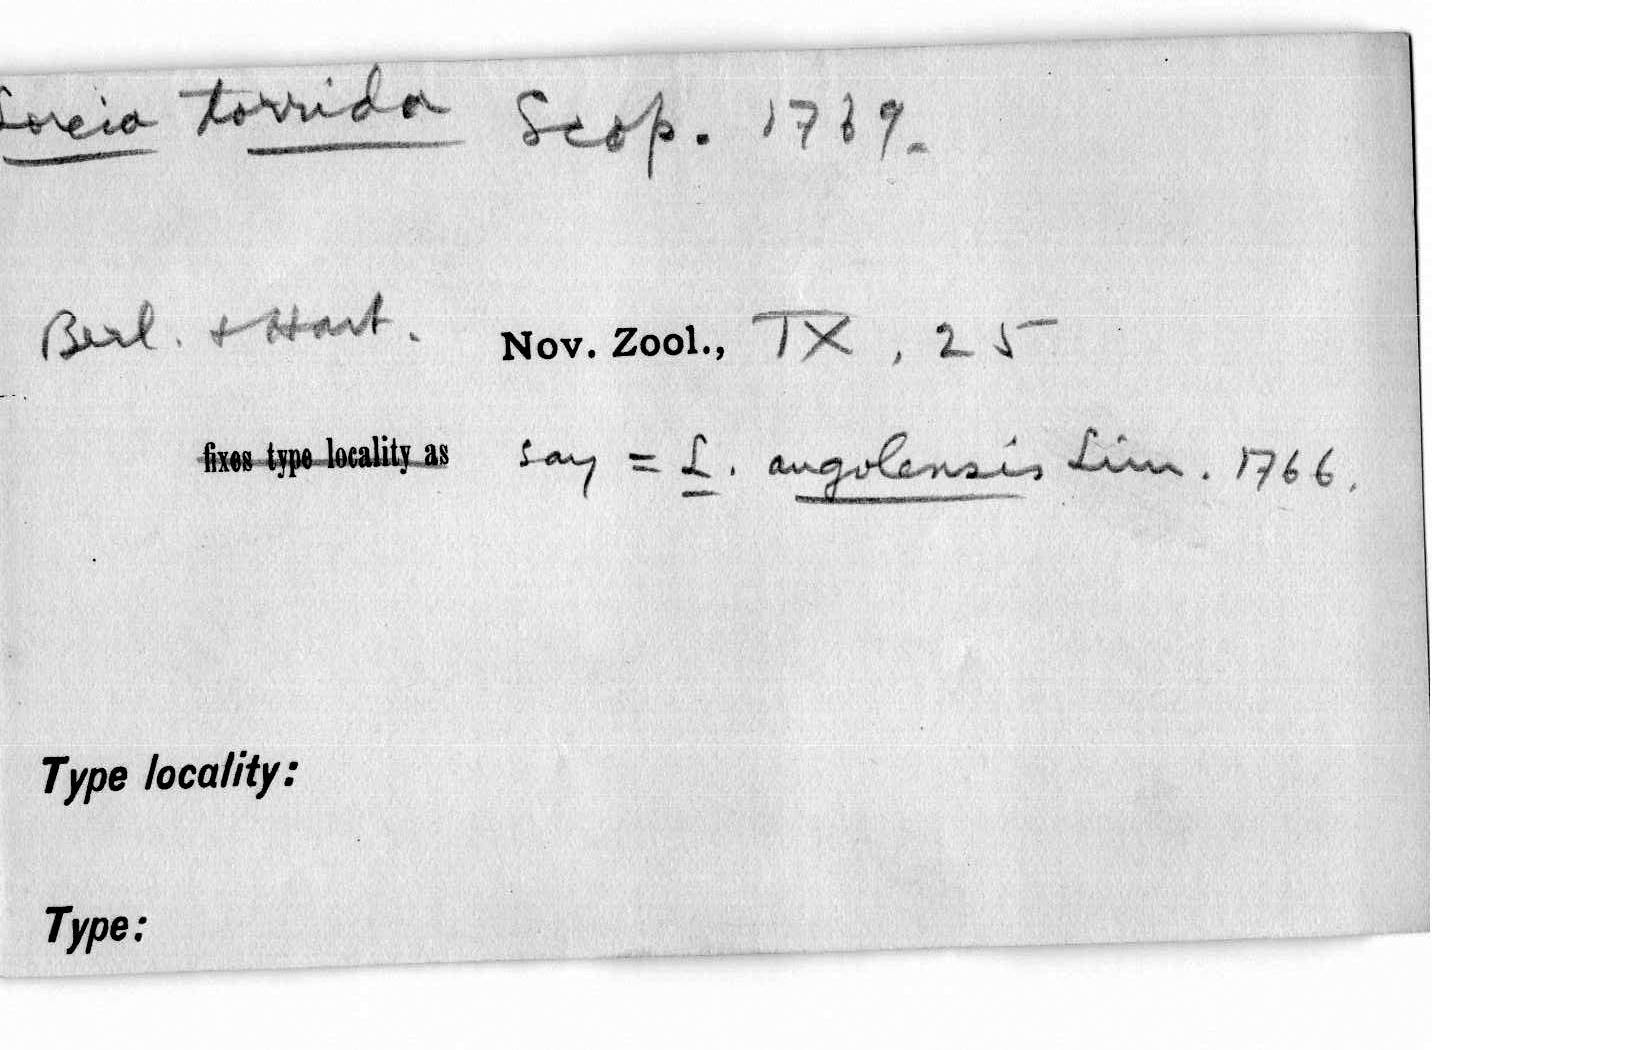 Loxia torrida Scop. 1769.
Berl. + Hart. Nov. Zool., IX, 25
fixes type locality as say = L. angolensis Linn. 1766.
Type locality:
Type: